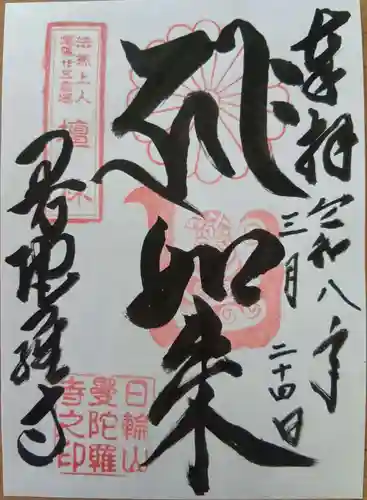 奉拝
令和八年
三月
二十四日
如来
曼陀羅寺
法然上人
檀林
日輪山
曼陀羅
寺之印